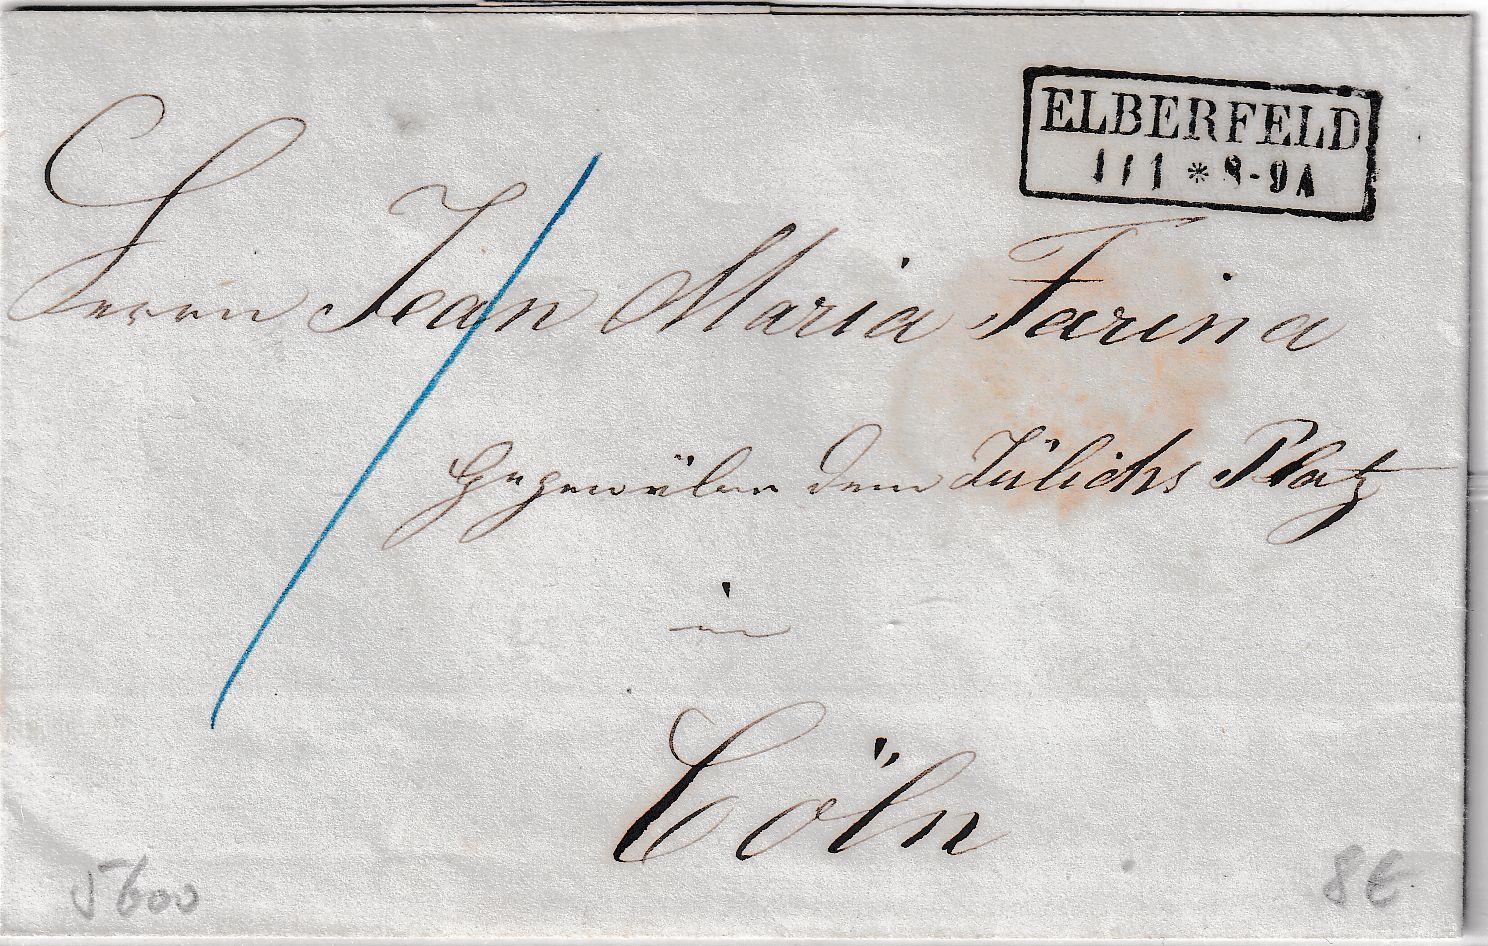 ELBERFELD
1 1 1 * 8-9A
Herrn Jean Maria Farina
Gegenüber dem Jülichs Platz
in
Cöln
5600
8€